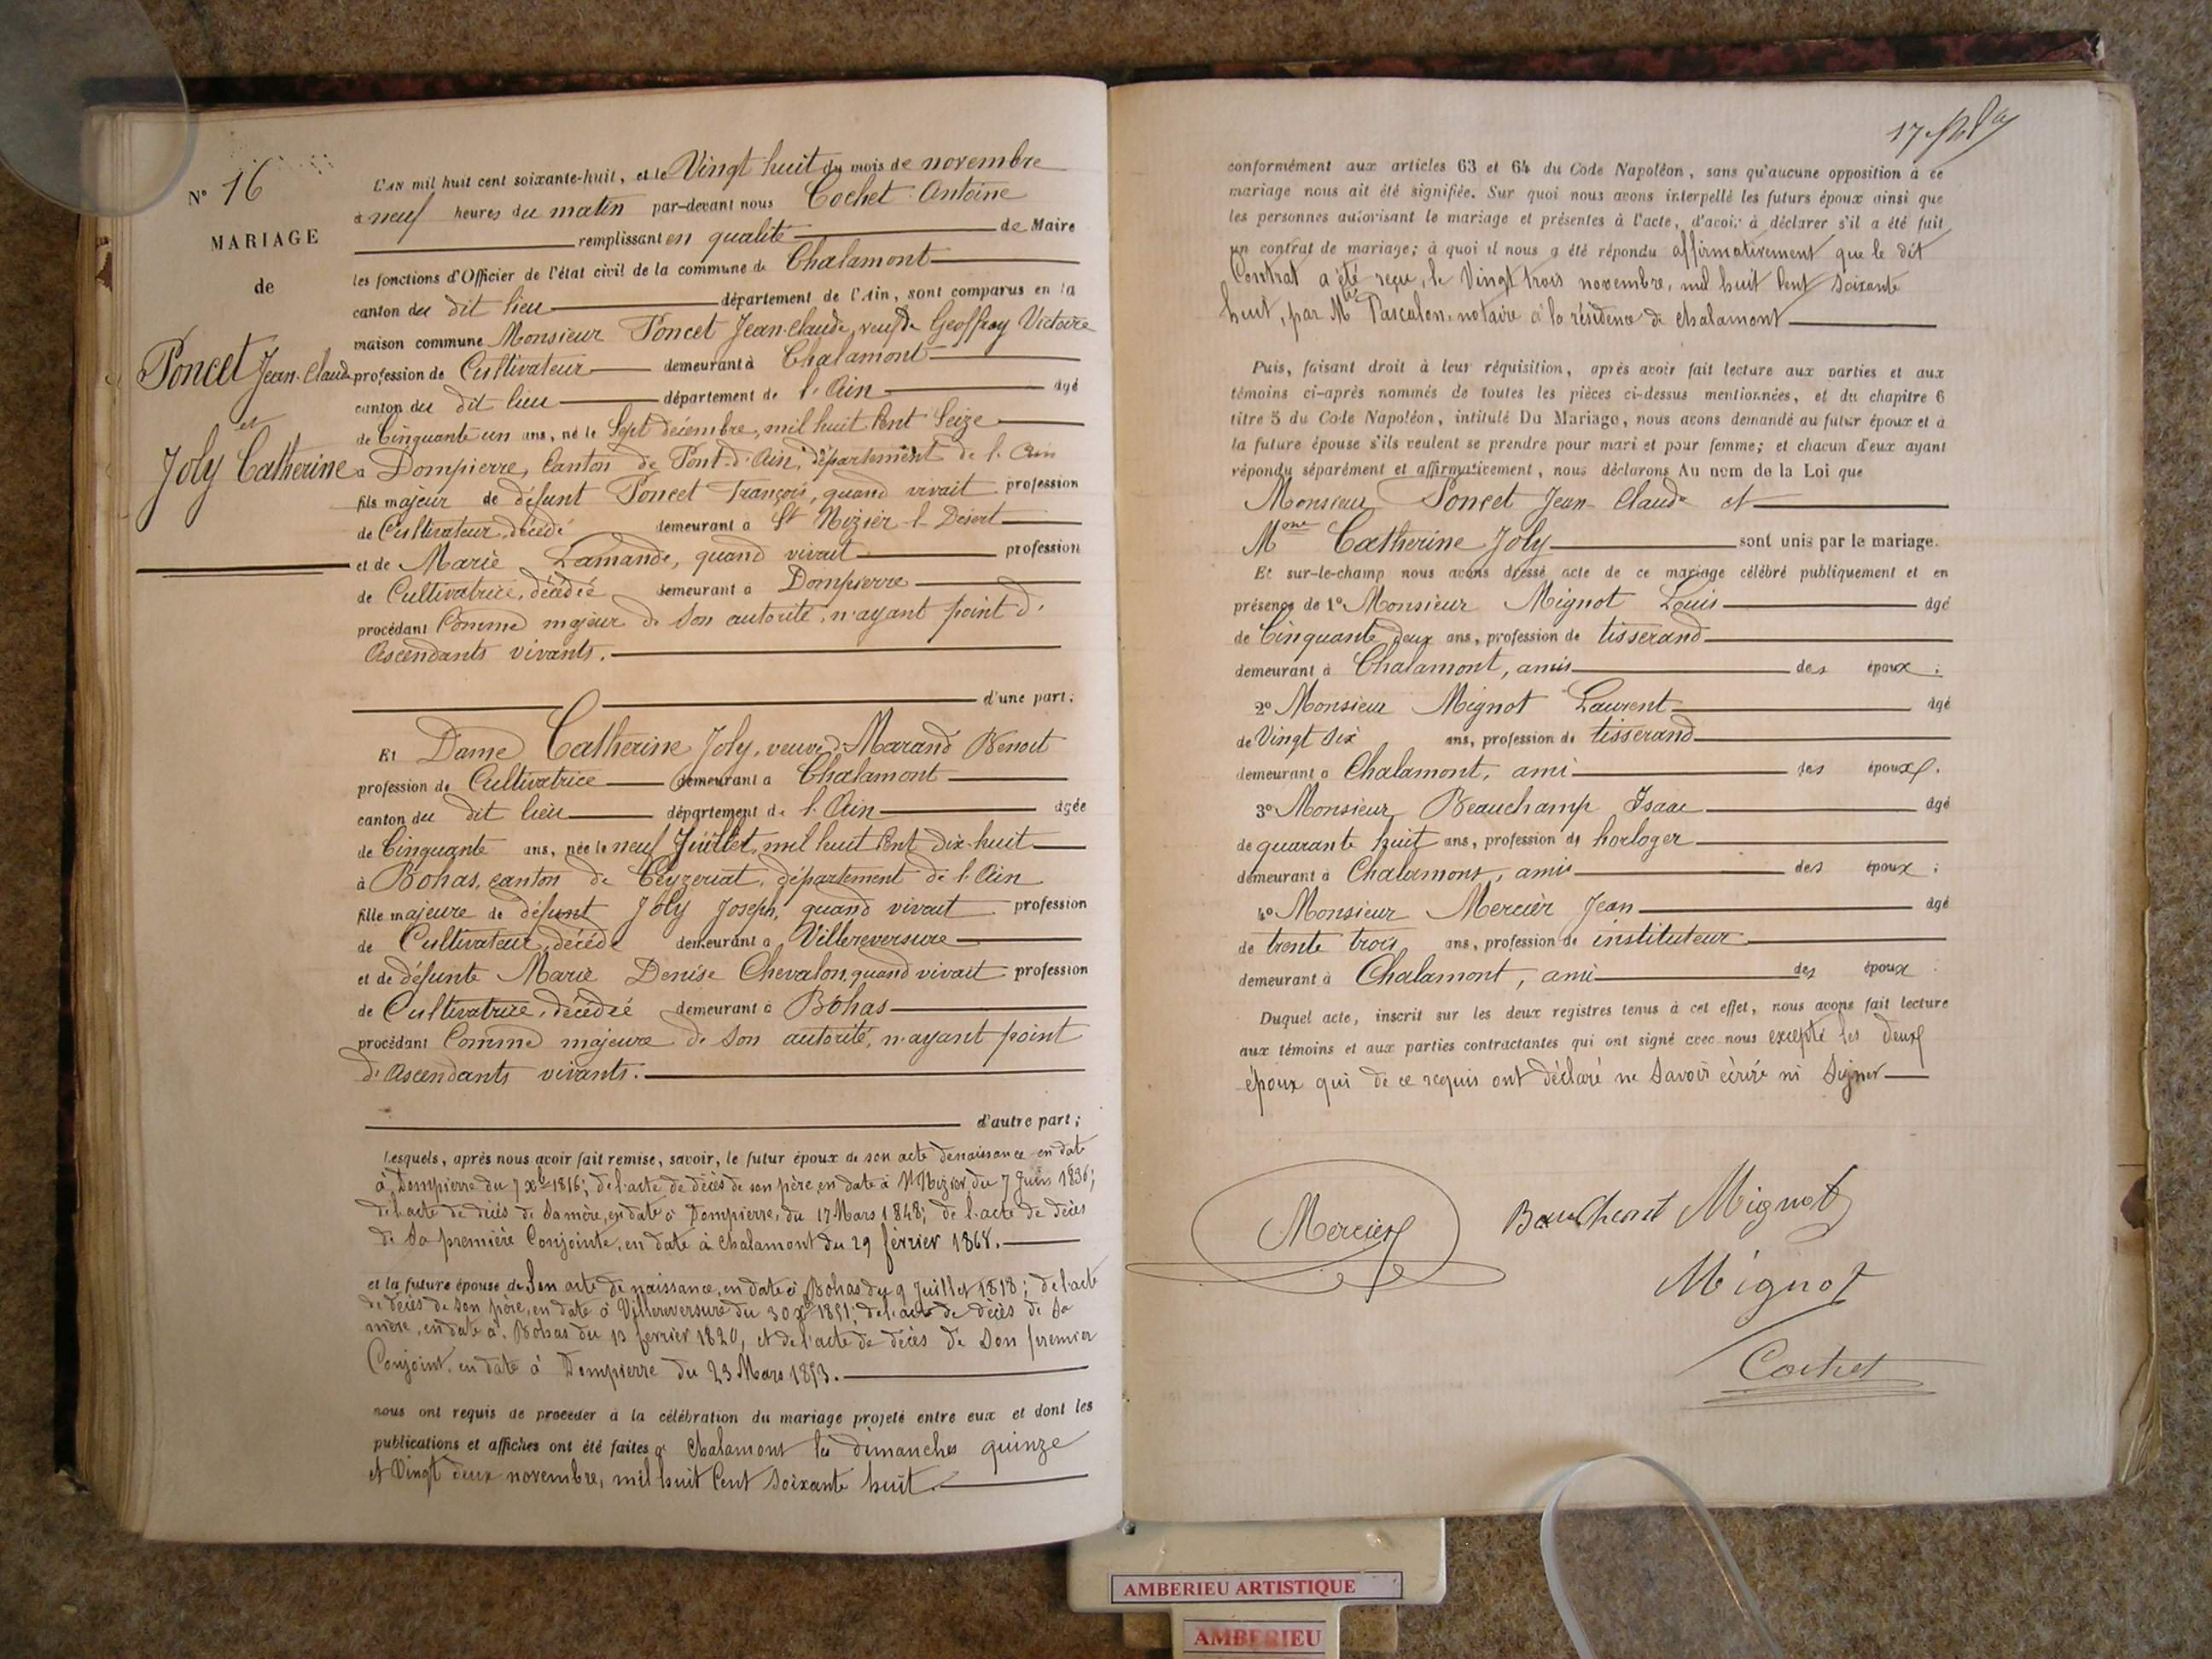 N° 16
MARIAGE
de
Poncet Jean-Claude
et
Joly Catherine
L'AN mil huit cent soixante-huit, et le Vingt huit du mois de novembre
à neuf heures du matin par-devant nous Cochet Antoine
remplissant en qualité de Maire
les fonctions d'Officier de l'état civil de la commune de Chalamont
canton du dit lieu département de l'Ain, sont comparus en la
maison commune Monsieur Poncet Jean-Claude, veuf de Geoffray Victoire
profession de Cultivateur demeurant à Chalamont
canton du dit lieu département de l'Ain âgé
de Cinquante un ans, né le Sept décembre, mil huit Cent Seize
à Dompierre, Canton de Pont-d'Ain, département de l'Ain
fils majeur de défunt Poncet François, quand vivait profession
de Cultivateur, décédé demeurant à St Nizier-l-Désert
et de Marie Lamande, quand vivait profession
de Cultivatrice, décédée demeurant à Dompierre
procédant Comme majeur de Son autorité, n'ayant point d'
Ascendants vivants.
d'une part;
Et Dame Catherine Joly, veuve de Marand Benoit
profession de Cultivatrice demeurant à Chalamont
canton du dit lieu département de l'Ain âgée
de Cinquante ans, née le neuf Juillet, mil huit Cent dix-huit
à Bohas, canton de Ceyzeriat, département de l'Ain
fille majeure de défunt Joly Joseph, quand vivait profession
de Cultivateur, décédé demeurant à Villereversure
et de défunte Marie Denise Chevalon, quand vivait profession
de Cultivatrice, décédée demeurant à Bohas
procédant Comme majeure de Son autorité, n'ayant point
d'Ascendants vivants.
d'autre part;
Lesquels, après nous avoir fait remise, savoir, le futur époux de son acte de naissance en date
à Dompierre du 7 Xbre 1816; de l'acte de décès de son père, en date à St Nizier, du 7 Juin 1836;
de l'acte de décès de Sa mère, en date à Dompierre, du 17 Mars 1848; de l'acte de décès
de Sa première Conjointe, en date à Chalamont du 29 février 1868.
et la future épouse de Son acte de naissance, en date à Bohas du 9 Juillet 1818; de l'acte
de décès de son père, en date à Villereversure du 30 Xbre 1851; de l'acte de décès de Sa
mère, en date à Bohas du 13 février 1820, et de l'acte de décès de Son premier
Conjoint, en date à Dompierre du 23 Mars 1853.
nous ont requis de procéder à la célébration du mariage projeté entre eux et dont les
publications et affiches ont été faites à Chalamont les dimanches quinze
et Vingt deux novembre, mil huit Cent Soixante huit.
17
conformément aux articles 63 et 64 du Code Napoléon, sans qu'aucune opposition à ce
mariage nous ait été signifiée. Sur quoi nous avons interpellé les futurs époux ainsi que
les personnes autorisant le mariage et présentes à l'acte, d'avoir à déclarer s'il a été fait
un contrat de mariage; à quoi il nous a été répondu affirmativement que le dit
Contrat a été reçu, le Vingt trois novembre, mil huit Cent Soixante
huit, par Me Pascalon, notaire à la résidence de Chalamont
Puis, faisant droit à leur réquisition, après avoir fait lecture aux parties et aux
témoins ci-après nommés de toutes les pièces ci-dessus mentionnées, et du chapitre 6
titre 5 du Code Napoléon, intitulé Du Mariage, nous avons demandé au futur époux et à
la future épouse s'ils veulent se prendre pour mari et pour femme; et chacun d'eux ayant
répondu séparément et affirmativement, nous déclarons Au nom de la Loi que
Monsieur Poncet Jean-Claude et
Mme Catherine Joly sont unis par le mariage.
Et sur-le-champ nous avons dressé acte de ce mariage célébré publiquement et en
présence de 1° Monsieur Mignot Louis âgé
de Cinquante deux ans, profession de tisserand
demeurant à Chalamont, amis des époux;
2° Monsieur Mignot Laurent âgé
de Vingt Six ans, profession de tisserand
demeurant à Chalamont, ami des époux.
3° Monsieur Beauchamp Isaac âgé
de quarante huit ans, profession de horloger
demeurant à Chalamont, amis des époux;
4° Monsieur Mercier Jean âgé
de trente trois ans, profession de instituteur
demeurant à Chalamont, ami des époux
Duquel acte, inscrit sur les deux registres tenus à cet effet, nous avons fait lecture
aux témoins et aux parties contractantes qui ont signé avec nous excepté les deux
époux qui de ce requis ont déclaré ne Savoir écrire ni Signer
Mercier Mignot
Mignot
Cochet
AMBERIEU ARTISTIQUE
AMBERIEU